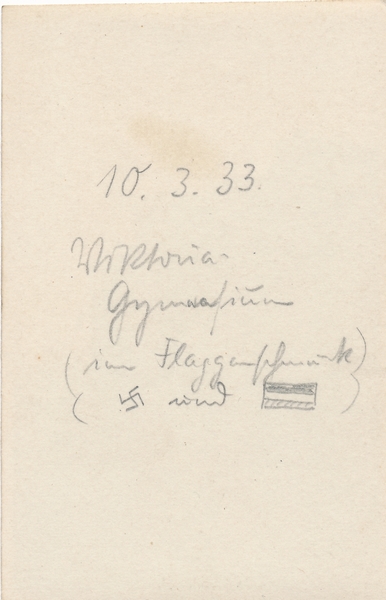 10. 3. 33.
Viktoria-
Gymnasium
(im Flaggenschmuck)
(卐 und )